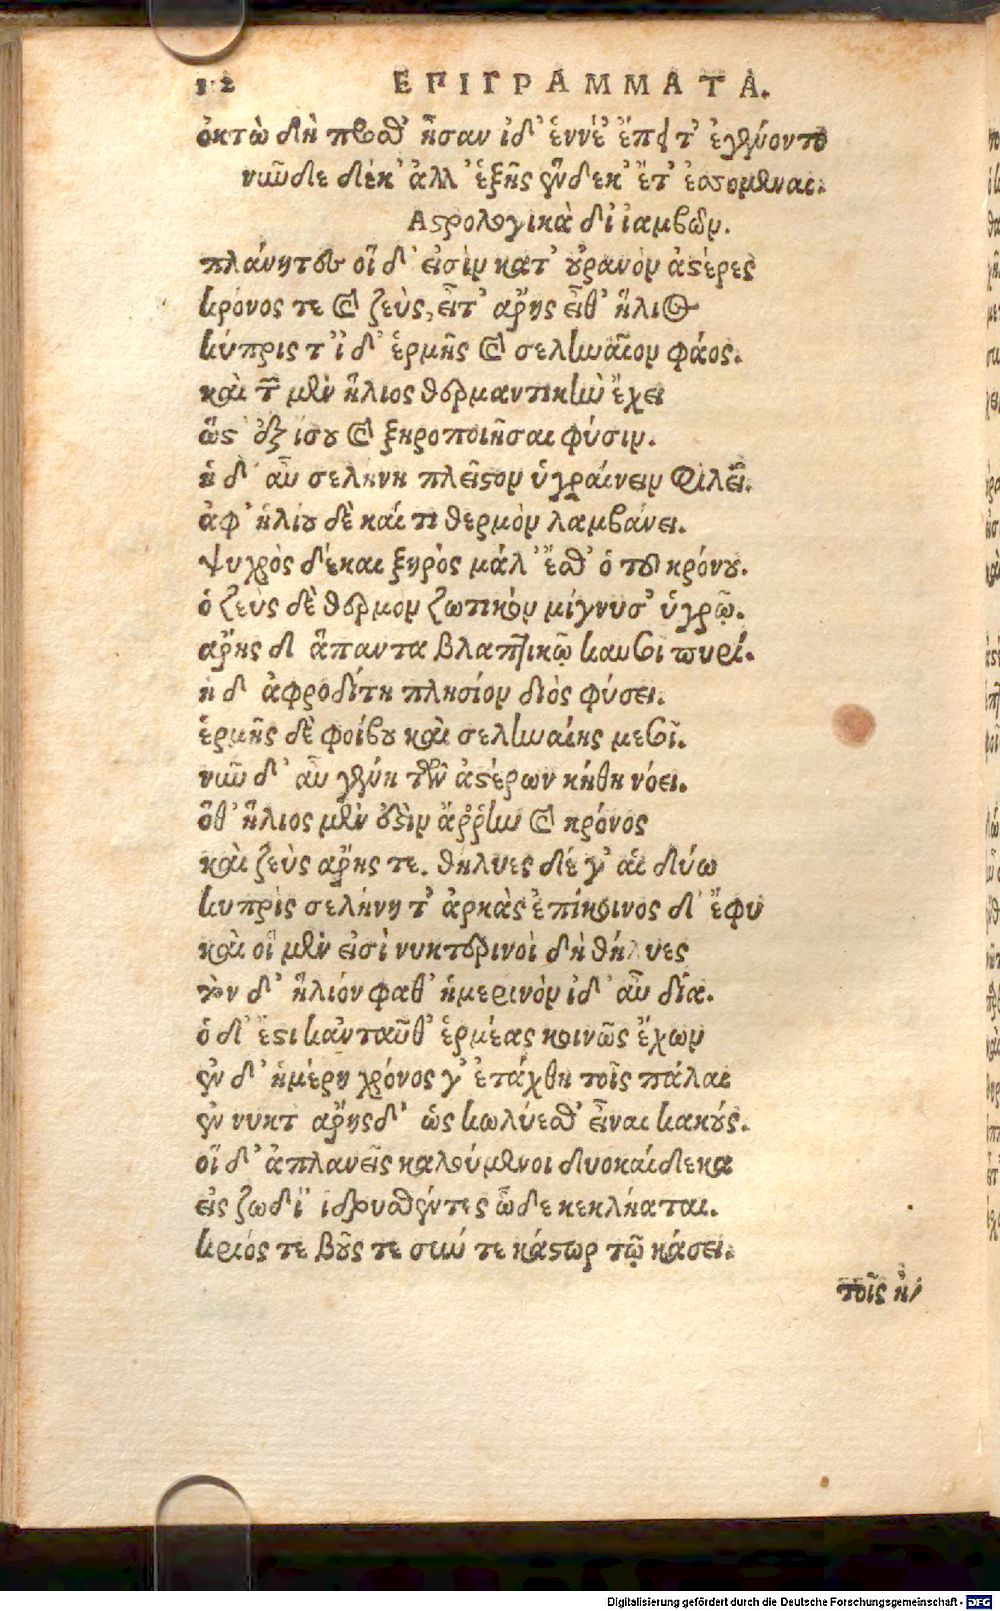 12 ΕΠΙΓΡΑΜΜΑΤΑ.
ὀκτὼ δὴ πρόσθ' ἦσαν ἰδ' ἐννέ' ἔπειτ' ἐγένοντο
νῦν δὲ δέκ' ἀλλ' ἑξῆς ἕνδεκ' ἔτ' ἐσσομέναι.
Ἀστρολογικὰ δι' ἰάμβων.
πλάνητες οἵ δ' εἰσὶν κατ' οὐρανὸν ἀστέρες
κρόνος τε καὶ ζεὺς, εἶτ' ἄρης εἶθ' ἥλιος
κύπρις τ' ἰδ' ἑρμῆς καὶ σεληναῖον φάος.
καὶ τὴν μὲν ἥλιος θερμαντικὴν ἔχει
ὥστ' ἐξ ἴσου καὶ ξηροποιῆσαι φύσιν.
ἡ δ' αὖ σελήνη πλεῖστον ὑγραίνειν φιλεῖ.
ἀφ' ἡλίου δὲ καί τι θερμὸν λαμβάνει.
ψυχρὸς δέ και ξηρὸς μάλ' ἔσθ' ὁ τοῦ κρόνου.
ὁ ζεὺς δὲ θερμον ζωτικὸν μίγνυσ' ὑγρῷ.
ἄρης δ' ἅπαντα βλαπτικῷ καυσι πυρί.
η δ' ἀφροδίτη πλησίον διὸς φύσει.
ἑρμῆς δὲ φοίβου καὶ σεληναίης μεσι.
νῦν δ' αὖ γένη τῶν ἀστέρων κήθη νόει.
ὅθ' ἥλιος μὲν ἐστὶν ἄῤῥην καὶ κρόνος
καὶ ζεὺς ἄρης τε. θήλυες δέ γ' αἱ δύω
κυπρὶς σελήνη τ' ἀρκὰς ἐπίκοινος δ' ἔφυ
καὶ οἱ μὲν εἰσὶ νυκτερινοὶ δὴ θήλυες
τὸν δ' ἥλιόν φαθ' ἡμερινὸν ἰδ' αὖ δία.
ὁ δ' ἔστι κἀνταῦθ' ἑρμέας κοινῶς ἔχων
ἐν δ' ἡμέρῃ χρόνος γ' ἐτάχθη τοῖς πάλαι
ἐν νυκτ ἄρης δ' ὡς κωλύεσθ' εἶναι κακούς.
οἵ δ' ἀπλανεῖς καλούμενοι δυοκαίδεκα
εἰς ζώδι' ἱδρυσθέντες ὧδε κεκλήαται.
κριός τε βοῦς τε σύν τε κάστωρ τῷ κάσει.
τοῖς ἠ/
Digitalisierung gefördert durch die Deutsche Forschungsgemeinschaft - DFG